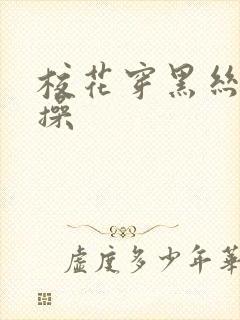 校花穿黑丝
操
虚度多少年華